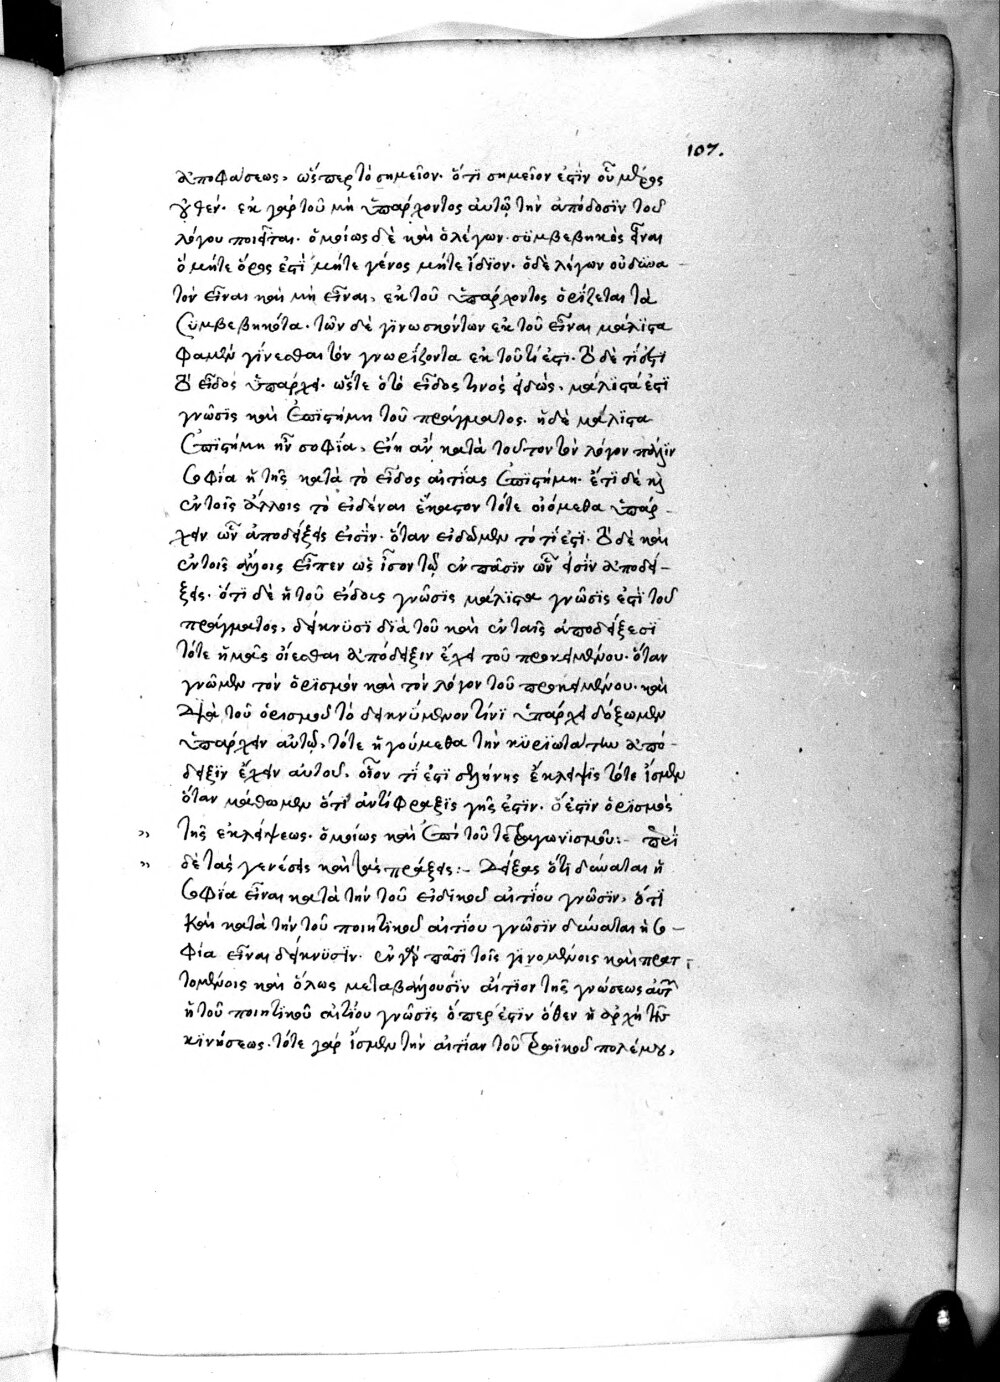 107.
ἀποφάσεως, ὥσπερ τὸ σημεῖον. ὅτι σημεῖόν ἐστιν οὗ μέρος
οὐθέν. ἐκ γὰρ τοῦ μὴ ὑπάρχοντος αὐτῷ τὴν ἀπόδοσιν τοῦ
λόγου ποιεῖται. ὁμοίως δὲ καὶ ὁ λέγων συμβεβηκὸς εἶναι
ὃ μήτε ὅρος ἐστὶ μήτε γένος μήτε ἴδιον. ὁ δὲ λέγων ὃ δύνα
τὸν εἶναι καὶ μὴ εἶναι, ἐκ τοῦ ὑπάρχοντος ὁρίζεται τὰ
συμβεβηκότα. τῶν δὲ γινωσκόντων ἐκ τοῦ εἶναι μάλιστα
φαμὲν γίνεσθαι τὸν γνωρίζοντα ἐκ τοῦ τί ἐστι. τὸ δὲ τί ἐστι
τὸ εἶδος ὑπάρχει. ὥστε ὁ τὸ εἶδος τινος εἰδὼς, μάλιστά ἐστι
γνῶσις καὶ ἐπιστήμη τοῦ πράγματος. ἡ δὲ μάλιστα
ἐπιστήμη ἦν σοφία, εἴη ἂν κατὰ τοῦτον τὸν λόγον πάλιν
σοφία ἡ τῆς κατὰ τὸ εἶδος αἰτίας ἐπιστήμη. ἔτι δὲ κἀ
ἐν τοῖς ἄλλοις τὸ εἰδέναι ἕκαστον τότε οἰόμεθα ὑπάρ-
χειν ὧν ἀποδείξεις εἰσὶν. ὅταν εἰδῶμεν τὸ τί ἐστι. τὸ δὲ καὶ
ἐν τοῖς ἄλλοις εἶπεν ὡς ἴσον τῷ ἐν πᾶσιν ὧν εἰσὶν ἀποδεί-
ξεις. ὅτι δὲ ἡ τοῦ εἴδους γνῶσις μάλιστα γνῶσίς ἐστι τοῦ
πράγματος, δείκνυσι διὰ τοῦ καὶ ἐν ταῖς ἀποδείξεσι
τότε ἡμᾶς οἴεσθαι ἀπόδειξιν ἔχειν τοῦ προκειμένου. ὅταν
γνῶμεν τὸν ὁρισμὸν καὶ τὸν λόγον τοῦ προκειμένου. καὶ
διὰ τοῦ ὁρισμοῦ τὸ δεικνύμενον τινὶ ὑπάρχειν δείξωμεν
ὑπάρχειν αὐτῷ, τότε ἡγούμεθα τὴν κυριωτάτην ἀπό-
δειξιν ἔχειν αὐτοῦ. οἷον τί ἐστι σελήνης ἔκλειψις τότε ἴσμεν
ὅταν μάθωμεν ὅτι ἀντίφραξις γῆς ἐστιν. ὅ ἐστιν ὁρισμὸς
" τῆς ἐκλείψεως. ὁμοίως καὶ ἐπὶ τοῦ τετραγωνισμοῦ:- περὶ
" δὲ τὰς γενέσεις καὶ τὰς πράξεις:- Δείξας ὅτι δύναται ἡ
σοφία εἶναι κατὰ τὴν τοῦ εἰδικοῦ αἰτίου γνῶσιν, ὅτι
καὶ κατὰ τὴν τοῦ ποιητικοῦ αἰτίου γνῶσιν δύναται ἡ σο-
φία εἶναι δείκνυσιν. ἐν γὰρ πᾶσι τοῖς γινομένοις καὶ πρατ
τομένοις καὶ ὅλως μεταβάλλουσιν αἴτιον τῆς γνώσεως αὐτῶν
ἡ τοῦ ποιητικοῦ αἰτίου γνῶσις ὅπερ ἐστὶν ὅθεν ἡ ἀρχὴ τῆς
κινήσεως. τότε γὰρ ἴσμεν τὴν αἰτίαν τοῦ τρωϊκοῦ πολέμου,